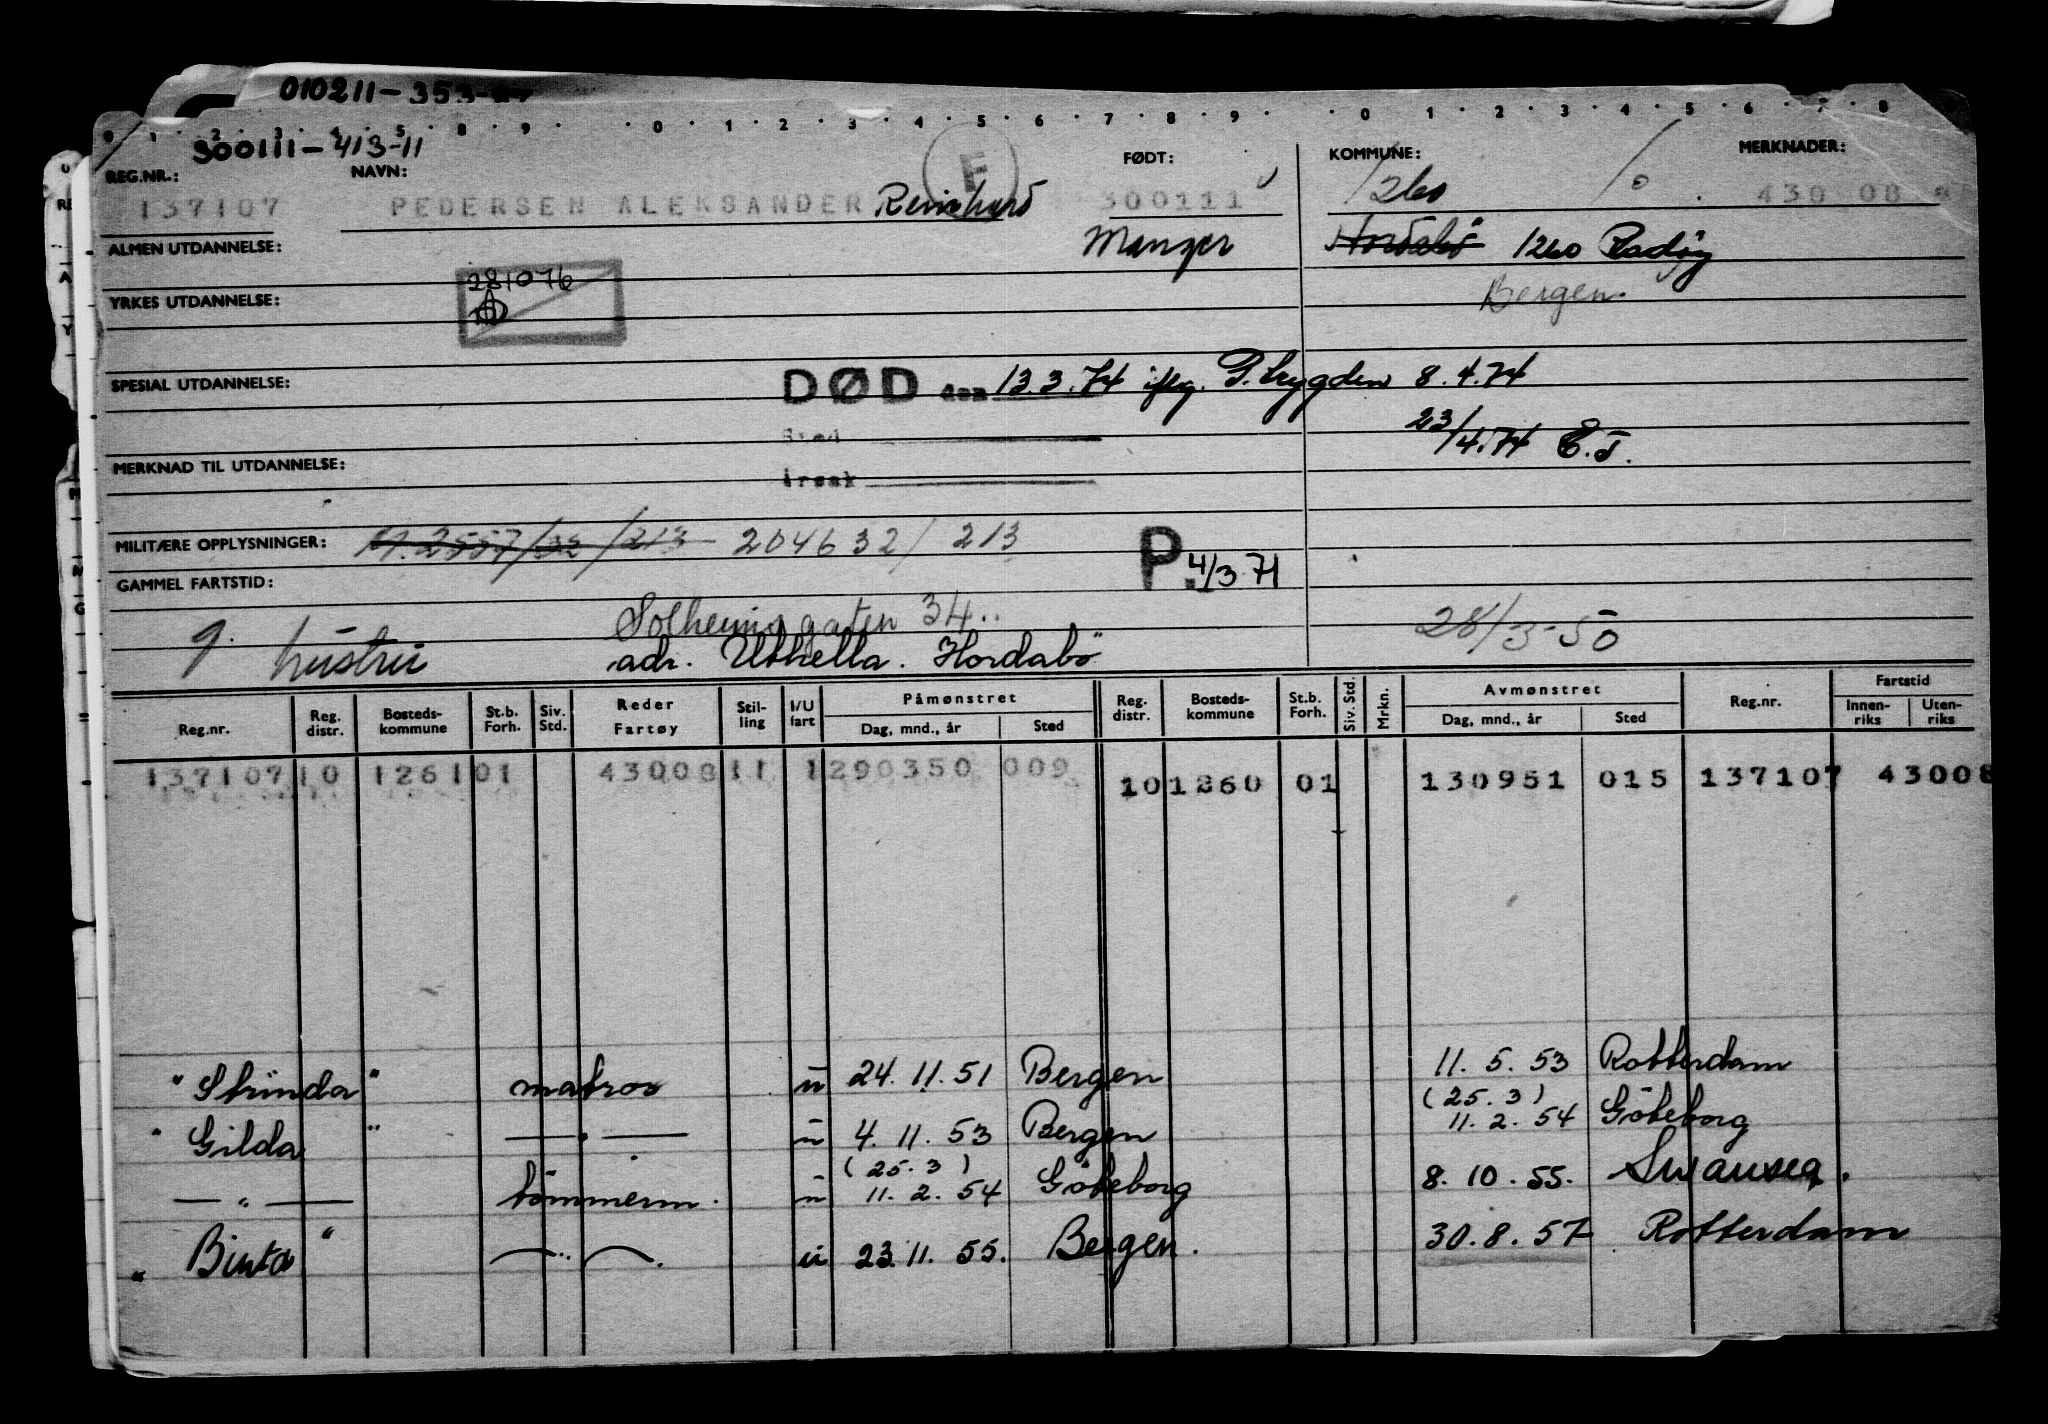 010211-353-
300111-413-11
REG.NR.: NAVN: FØDT: KOMMUNE: MERKNADER:
137107 PEDERSEN ALEKSANDER Reinhard F 300111 1260 430 08
ALMEN UTDANNELSE: Manger Hordabö 1260 Radøy
281076
YRKES UTDANNELSE: Bergen.
SPESIAL UTDANNELSE: DØD den 13.3.74 iflg. P.trygden 8.4.74
Sted 23/4.74 E.J.
MERKNAD TIL UTDANNELSE: årsak
MILITÆRE OPPLYSNINGER: M.2557/32/213 204632/213 P. 4/3 71
GAMMEL FARTSTID:
Solheimsgaten 34.. 28/3-50
g. hustru adr. Uthella. Hordabö
Reg.nr. Reg. distr. Bosteds-kommune St.b. Forh. Siv. Std. Reder Fartøy Stil-ling I/U fart Påmønstret Dag, mnd., år Sted Reg. distr. Bosteds-kommune St.b. Forh. Siv. Std. Mrkn. Avmønstret Dag, mnd., år Sted Reg.nr. Fartstid Innen-riks Uten-riks
137107 10 1261 01 43008 11 1 290350 009 10 1260 01 130951 015 137107 43008
"Strinda" matros u 24.11.51 Bergen 11.5.53 Rotterdam
"Gilda" —"— u 4.11.53 Bergen (25.3) 11.2.54 Göteborg
—"— tömmerm. u (25.3) 11.2.54 Göteborg 8.10.55. Swansea.
"Binta" —"—. u 23.11.55. Bergen. 30.8.57 Rotterdam